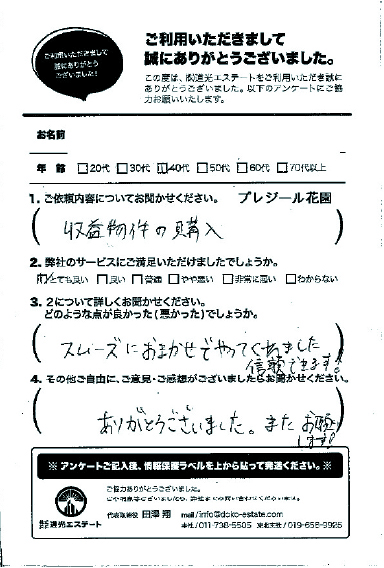 ご利用いただきまして
誠にありがとう
ございました!
ご利用いただきまして
誠にありがとうございました。
この度は、㈱道光エステートをご利用いただき誠に
ありがとうございました。以下のアンケートにご協
力お願いいたします。
お名前
年齢 □20代 □30代 ☑40代 □50代 □60代 □70代以上
1. ご依頼内容についてお聞かせください。 プレジール花園
収益物件の購入
2. 弊社のサービスにご満足いただけましたでしょうか。
☑とても良い □良い □普通 □やや悪い □非常に悪い □わからない
3. 2について詳しくお聞かせください。
どのような点が良かった(悪かった)でしょうか。
スムーズにおまかせでやってくれました
信頼できます!
4. その他ご自由に、ご意見・ご感想がございましたらお聞かせください。
ありがとうございました。また お願い
します!
※ アンケートご記入後、情報保護ラベルを上から貼って発送ください。※
ご協力ありがとうございました。
株式会社道光エステート
代表取締役 田澤 翔 mail/info@doko-estate.com
本社/011-738-5505 東北支社/019-656-9925